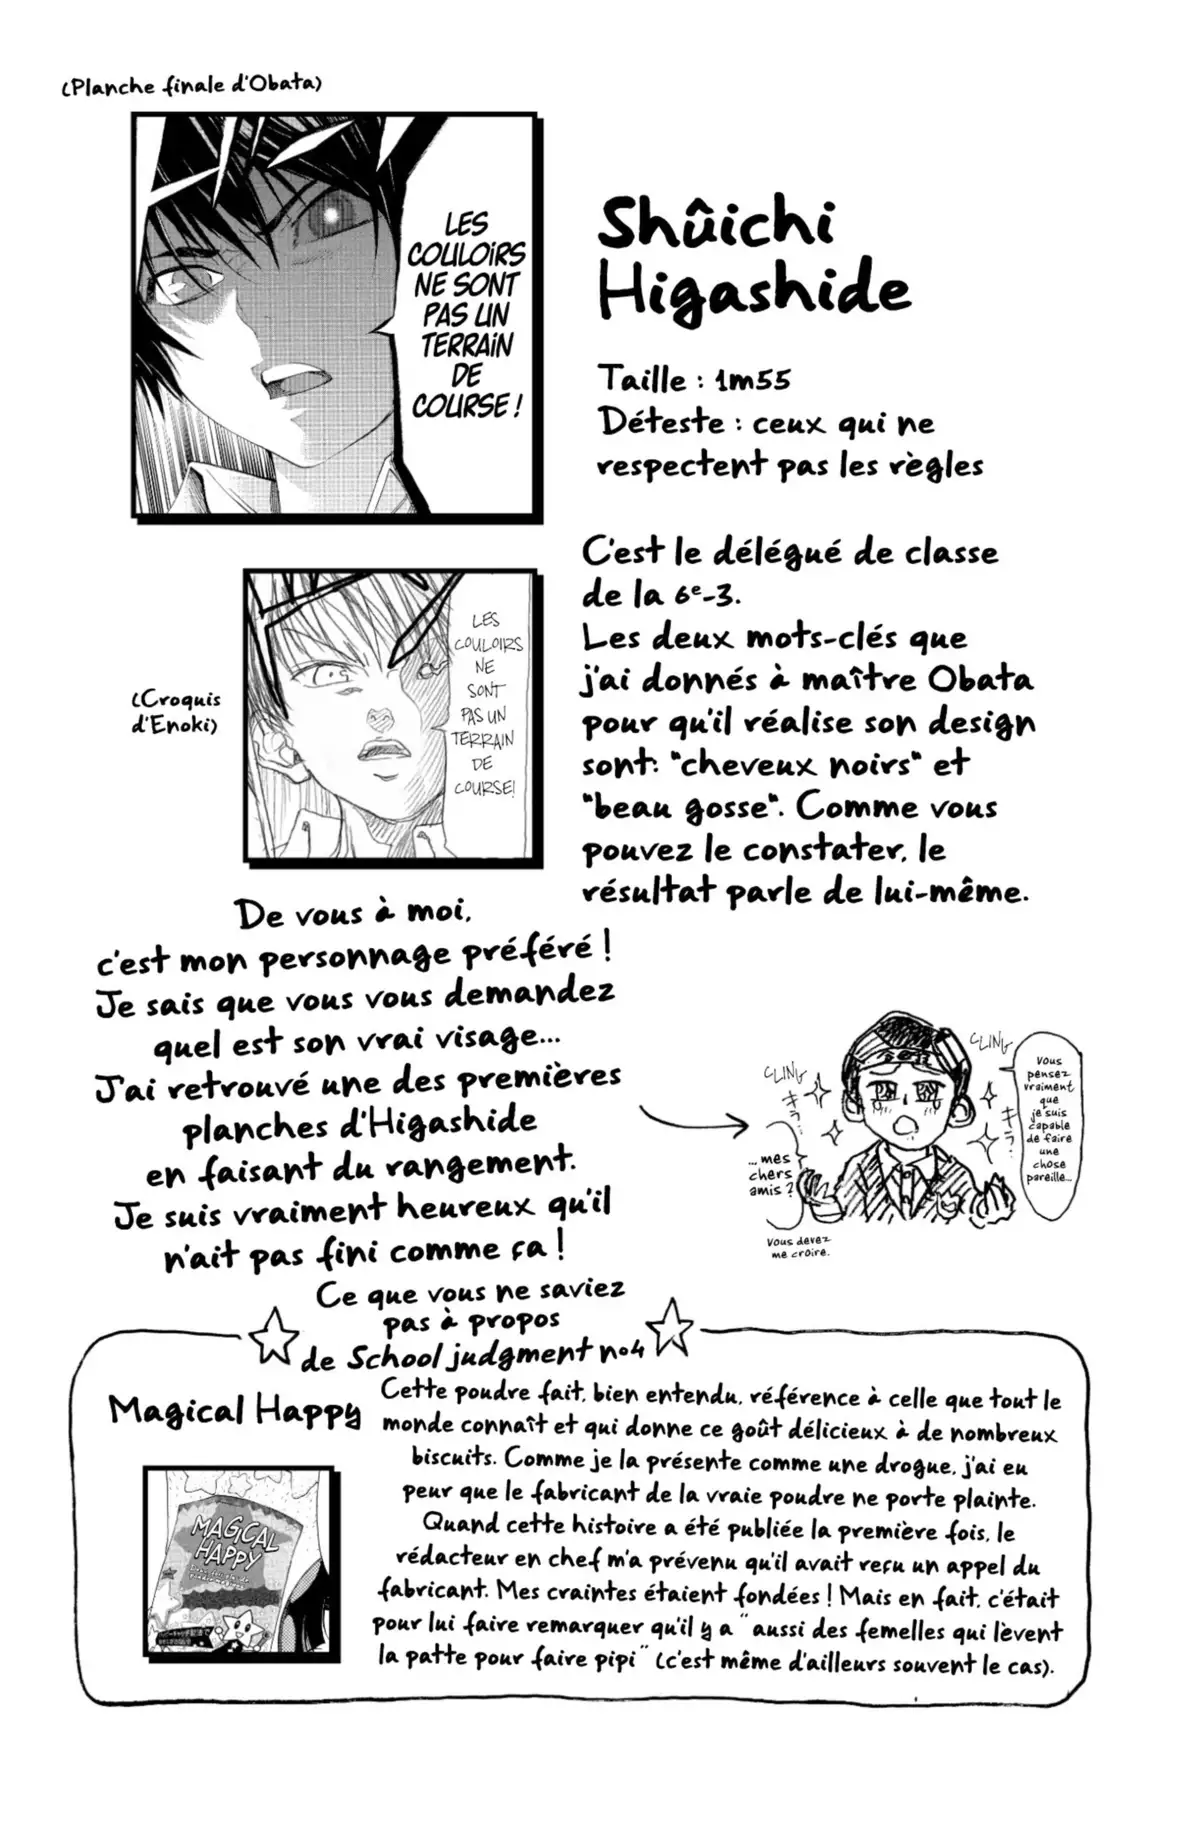 (Planche finale d'Obata)
LES
COULOIRS
NE SONT
PAS UN
TERRAIN
DE
COURSE !
Shûichi
Higashide
Taille : 1m55
Déteste : ceux qui ne
respectent pas les règles
C'est le délégué de classe
de la 6e-3.
Les deux mots-clés que
j'ai donnés à maître Obata
pour qu'il réalise son design
sont: "cheveux noirs" et
"beau gosse". Comme vous
pouvez le constater, le
résultat parle de lui-même.
(Croquis
d'Enoki)
LES
COULOIRS
NE
SONT
PAS UN
TERRAIN
DE
COURSE!
De vous à moi,
c'est mon personnage préféré !
Je sais que vous vous demandez
quel est son vrai visage...
J'ai retrouvé une des premières
planches d'Higashide
en faisant du rangement.
Je suis vraiment heureux qu'il
n'ait pas fini comme ça !
CLING
キラ..
Vous
pensez
vraiment
que
je suis
capable
de faire
une
chose
pareille...
CLING
キラ..
... mes
chers
amis ?
Vous devez
me croire.
Ce que vous ne saviez
pas à propos
de School judgment n°4
Magical Happy
MAGICAL
HAPPY
Cette poudre fait, bien entendu, référence à celle que tout le
monde connaît et qui donne ce goût délicieux à de nombreux
biscuits. Comme je la présente comme une drogue, j'ai eu
peur que le fabricant de la vraie poudre ne porte plainte.
Quand cette histoire a été publiée la première fois, le
rédacteur en chef m'a prévenu qu'il avait reçu un appel du
fabricant. Mes craintes étaient fondées ! Mais en fait, c'était
pour lui faire remarquer qu'il y a "aussi des femelles qui lèvent
la patte pour faire pipi" (c'est même d'ailleurs souvent le cas).